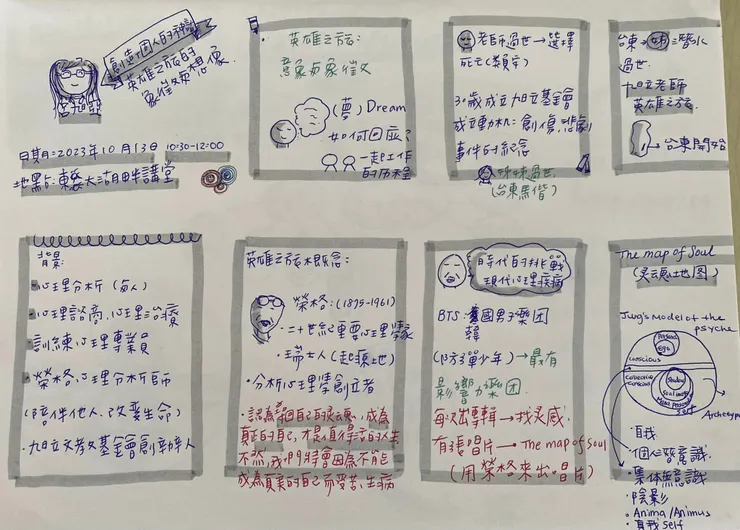 創造個人的神話
英雄之旅的
象徵與想像
呂旭亞
日期:2023年10月13日 10:30-12:00
地點:東華大湖畔講堂
英雄之旅:
意象与象徵
(夢) Dream
如何回應?
一起工作
的历程
老師過世→選擇
死亡(親宇)
30歲成立旭立基金會
成立動机:創傷,悲劇
事件的紀念
姊姊過世
(台東馬偕)
台東→姊
過世.
旭立老師
英雄之旅.
→台東開始
背景:
心理分析(每人)
心理諮商,心理治療
訓練心理專業員
榮格心理分析師
(陪伴他人,改變生命)
旭立文教基金會創辦人
英雄之旅概念:
榮格:(1875-1961)
二十世紀重要心理學家
瑞士人(起源地)
分析心理學創立者
認為每個自的灵魂,成為
真正的自己,才是真得活的人生
不然,我們將會因為不能
成為真美的自己而受苦,生病
時代的挑戰
現代心理疾病
BTS:韓國男子樂团
(防彈少年)→最有
影響力樂团.
每次出專輯→找灵感.
有張唱片→The map of Soul
(用榮格來出唱片)
The map of Soul
(灵魂地图)
Jung's Model of the
psyche
Persona
Ego
conscious
Collective
Shadow
Self
Archetype
自我
個人潛意識.
集体無意識
陰影
Anima/Animus
真我 Self